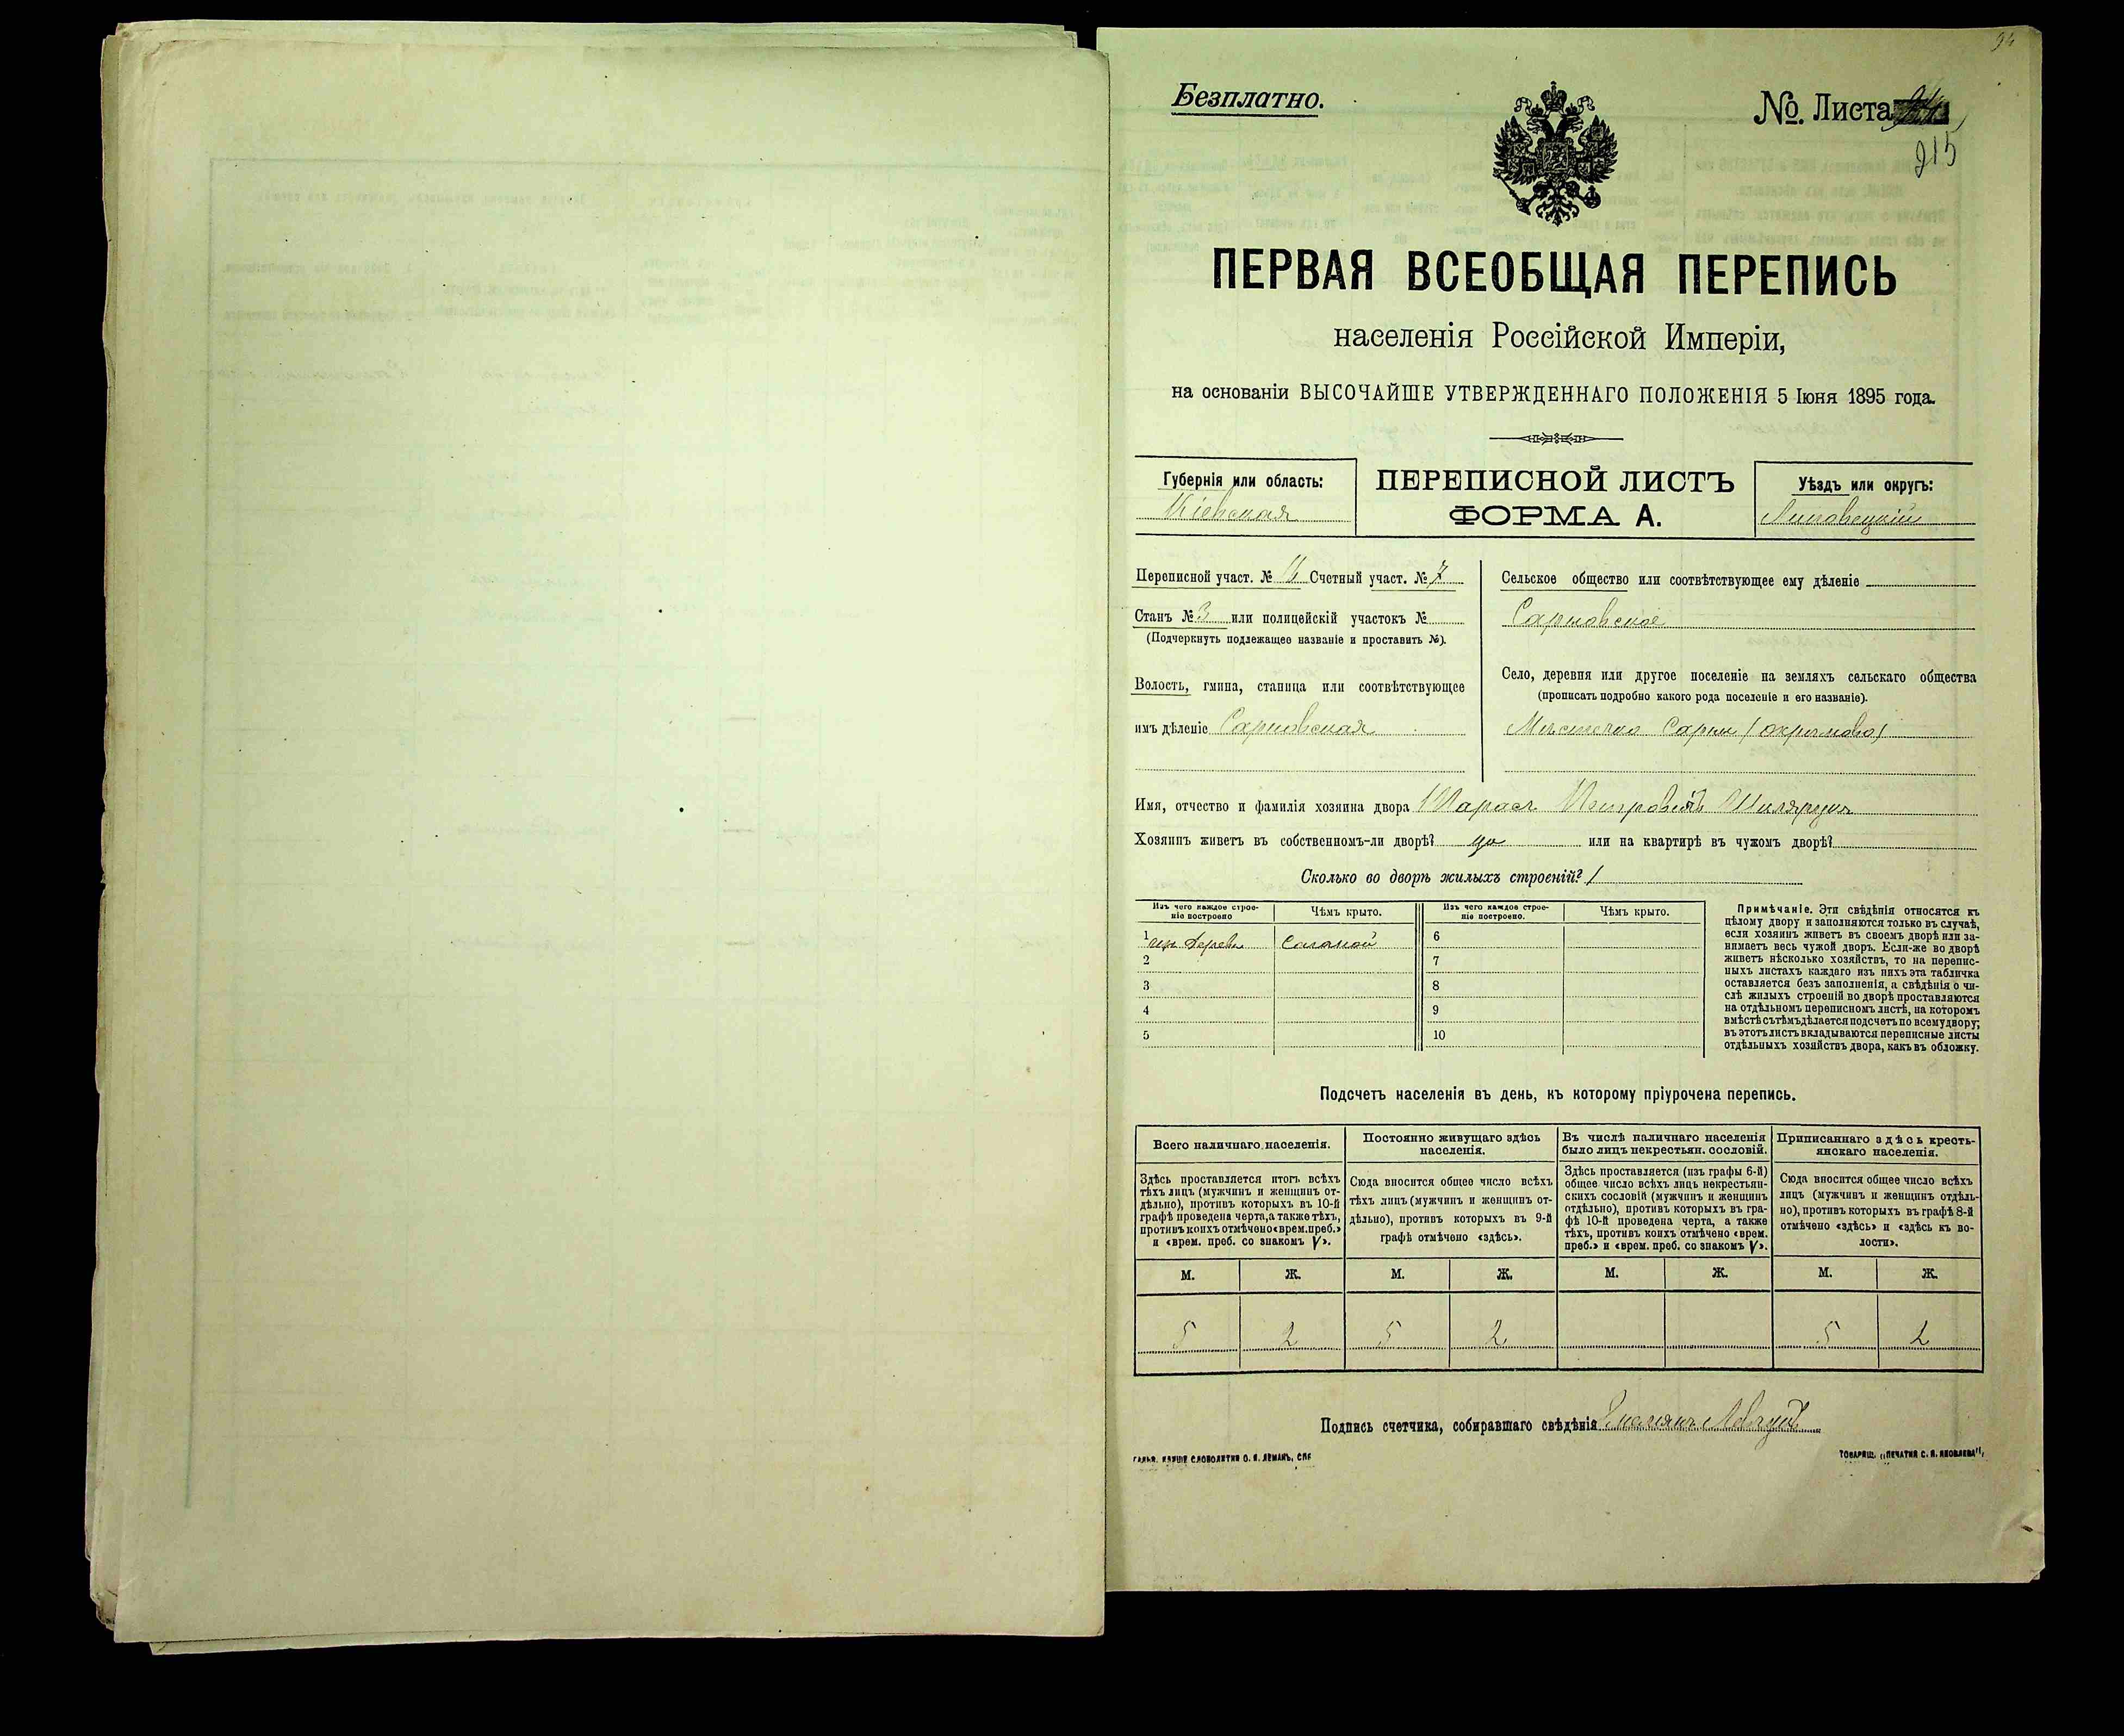 94
Безплатно.
№. Листа 94
215
ПЕРВАЯ ВСЕОБЩАЯ ПЕРЕПИСЬ
населенія Россійской Имперіи,
на основаніи ВЫСОЧАЙШЕ УТВЕРЖДЕННАГО ПОЛОЖЕНІЯ 5 Іюня 1895 года.
Губернія или область:
Кіевская
ПЕРЕПИСНОЙ ЛИСТЪ
ФОРМА А.
Уѣздъ или округъ:
Липовецкій
Переписной участ. № Счетный участ. № 7
Станъ № 3 или полицейскій участокъ №
(Подчеркнуть подлежащее названіе и проставить №).
Волость, гмина, станица или соотвѣтствующее
имъ дѣленіе Сарновская
Сельское общество или соотвѣтствующее ему дѣленіе
Сарновское
Село, деревня или другое поселеніе на земляхъ сельскаго общества
(прописать подробно какого рода поселеніе и его названіе).
Мѣстечко Сарны (Охрамово)
Имя, отчество и фамилія хозяина двора Тарасъ Петровичъ
Хозяинъ живетъ въ собственномъ-ли дворѣ? да или на квартирѣ въ чужомъ дворѣ?
Сколько во дворѣ жилыхъ строеній? 1
Изъ чего каждое строе-
ніе построено
Чѣмъ крыто.
Изъ чего каждое строе-
ніе построено.
Чѣмъ крыто.
1 изъ дерева соломой 6
2 7
3 8
4 9
5 10
Примѣчаніе. Эти свѣдѣнія относятся къ
цѣлому двору и заполняются только въ случаѣ,
если хозяинъ живетъ въ своемъ дворѣ или за-
нимаетъ весь чужой дворъ. Если-же во дворѣ
живетъ нѣсколько хозяйствъ, то на перепис-
ныхъ листахъ каждаго изъ нихъ эта табличка
оставляется безъ заполненія, а свѣдѣнія о чи-
слѣ жилыхъ строеній во дворѣ проставляются
на отдѣльномъ переписномъ листѣ, на которомъ
вмѣстѣ съ тѣмъ дѣлается подсчетъ по всему двору;
въ этотъ листъ вкладываются переписные листы
отдѣльныхъ хозяйствъ двора, какъ въ обложку.
Подсчетъ населенія въ день, къ которому пріурочена перепись.
Всего наличнаго населенія.
Здѣсь проставляется итогъ всѣхъ
тѣхъ лицъ (мужчинъ и женщинъ от-
дѣльно), противъ которыхъ въ 10-й
графѣ проведена черта, а также тѣхъ,
противъ коихъ отмѣчено «врем. преб.»
и «врем. преб. со знакомъ V».
Постоянно живущаго здѣсь
населенія.
Сюда вносится общее число всѣхъ
тѣхъ лицъ (мужчинъ и женщинъ от-
дѣльно), противъ которыхъ въ 9-й
графѣ отмѣчено «здѣсь».
Въ числѣ наличнаго населенія
было лицъ некрестьян. сословій.
Здѣсь проставляется (изъ графы 6-й)
общее число всѣхъ лицъ некрестьян-
скихъ сословій (мужчинъ и женщинъ
отдѣльно), противъ которыхъ въ гра-
фѣ 10-й проведена черта, а также
тѣхъ, противъ коихъ отмѣчено «врем.
преб.» и «врем. преб. со знакомъ V».
Приписаннаго здѣсь кресть-
янскаго населенія.
Сюда вносится общее число всѣхъ
лицъ (мужчинъ и женщинъ отдѣль-
но), противъ которыхъ въ графѣ 8-й
отмѣчено «здѣсь» и «здѣсь къ во-
лости».
М. Ж. М. Ж. М. Ж. М. Ж.
5 2 5 2 5 2
Подпись счетчика, собиравшаго свѣдѣнія Емельянъ
ГАЛЬВ. КЛИШЕ СЛОВОЛИТНИ О. И. ЛЕМАНЪ, СПБ
ТОВАРИЩ. „ПЕЧАТНЯ С. П. ЯКОВЛЕВА“,